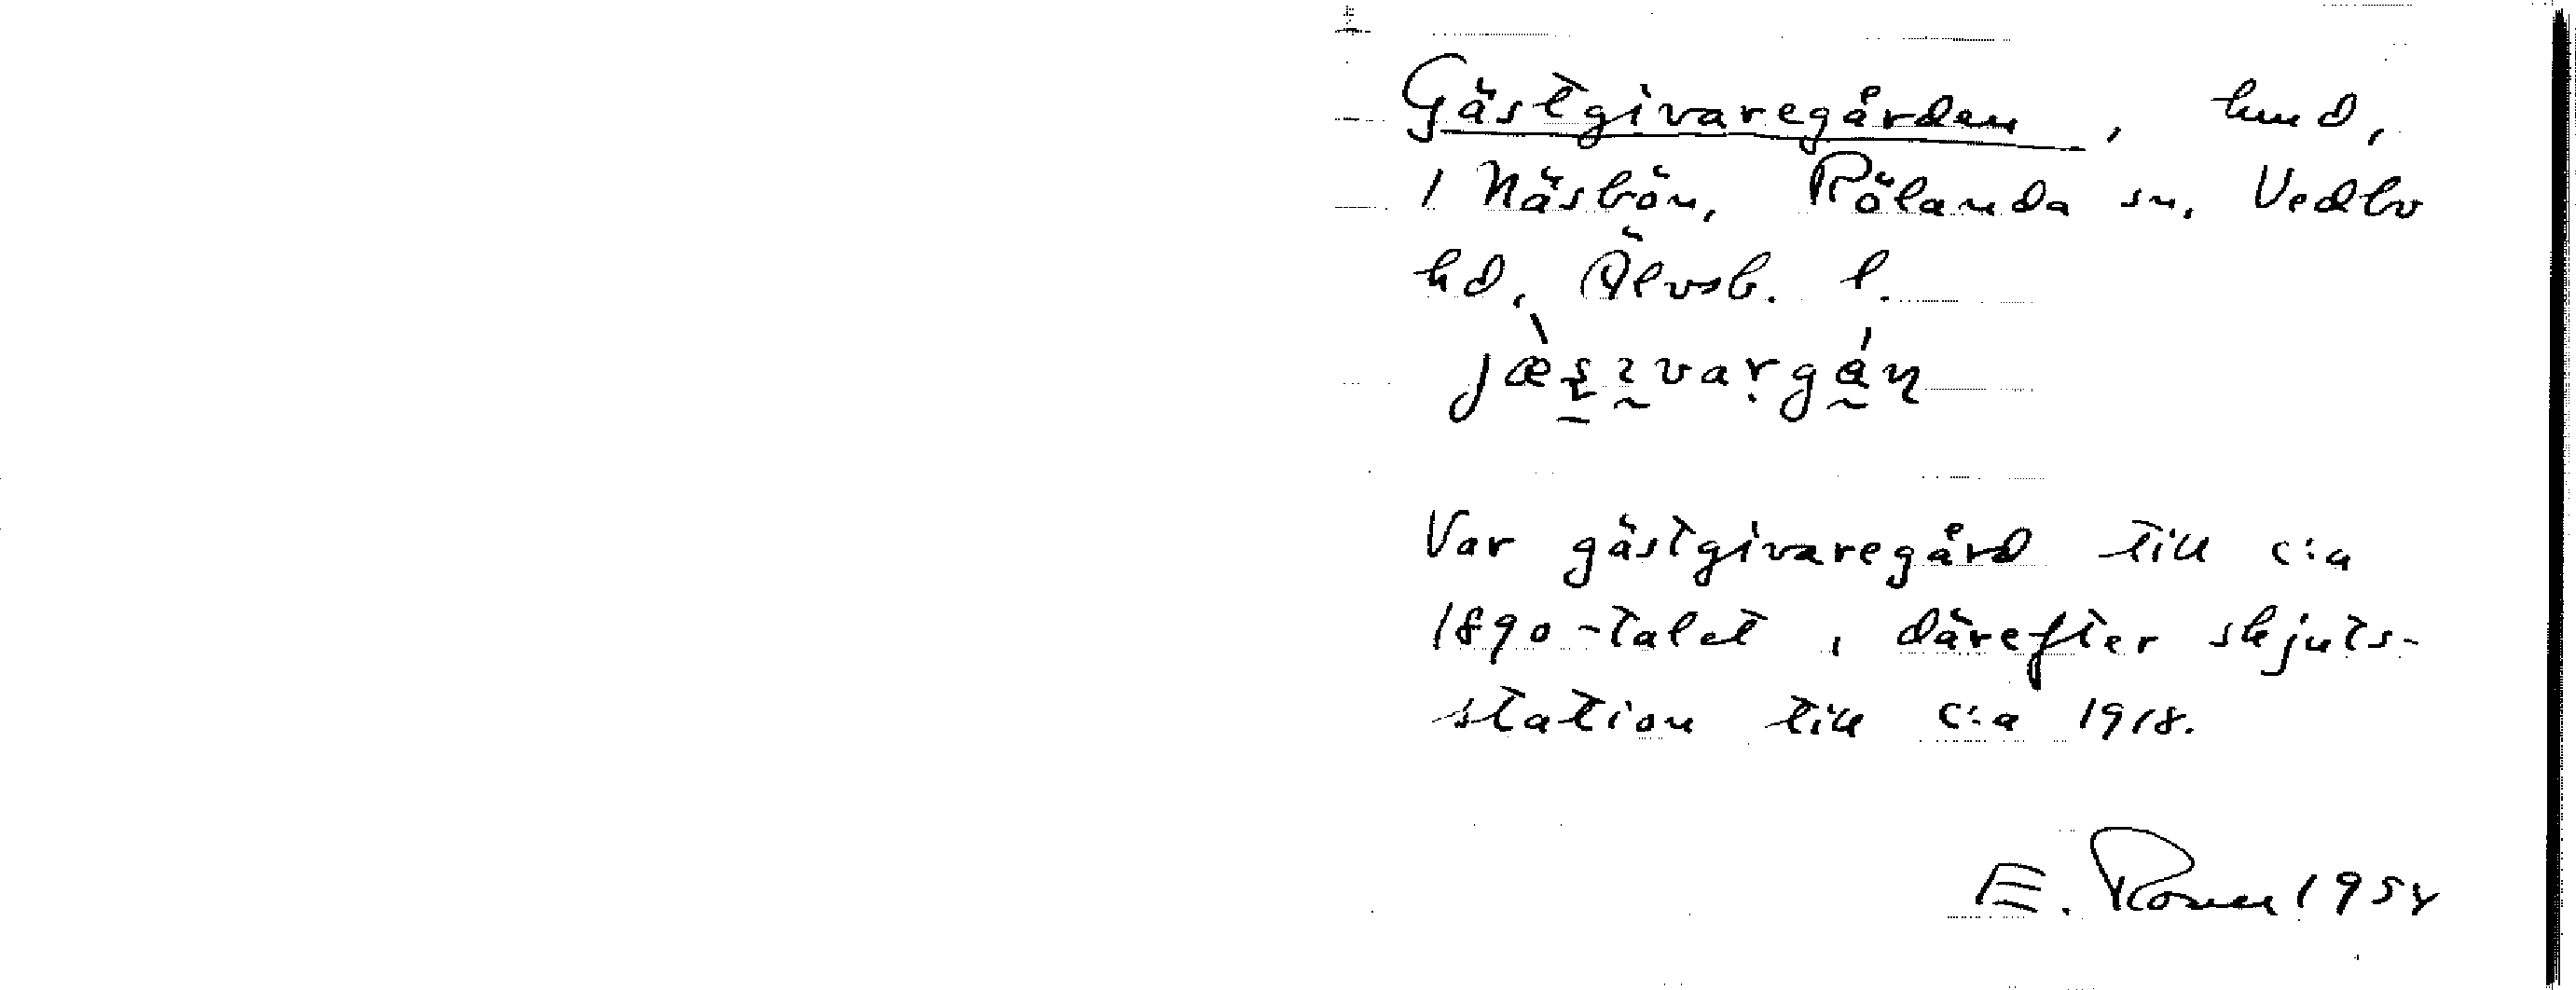 Gästgivaregården, hmd,
1 Näsbön, Rölanda sn, Vedbo
hd, Älvsb. l.
Var gästgivaregård till c:a
1890-talet, därefter skjuts-
station till c:a 1918.
E. 195